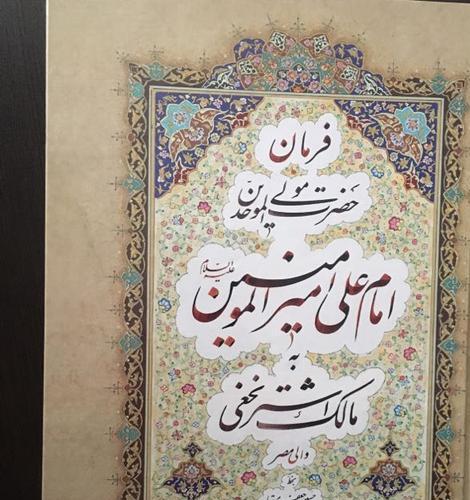 فرمان
حضرت مولی الموحدین
امام علی امیرالمومنین علیه السلام
به
مالک اشتر نخعی
والی مصر
بخط